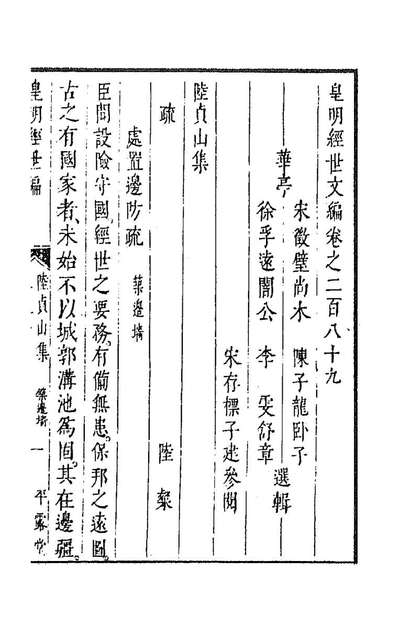 皇明經世文編卷之二百八十九
華亭
宋徵璧尚木
陳子龍臥子
徐孚遠闇公
李雯舒章
選輯
宋存標子建參閱
陸貞山集
疏
陸粲
處置邊防疏
築邊墻
臣聞設險守國經世之要務有備無患保邦之遠圖
古之有國家者未始不以城郭溝池爲固其在邊疆
皇明經世編
陸貞山集
築邊墻
一
平露堂